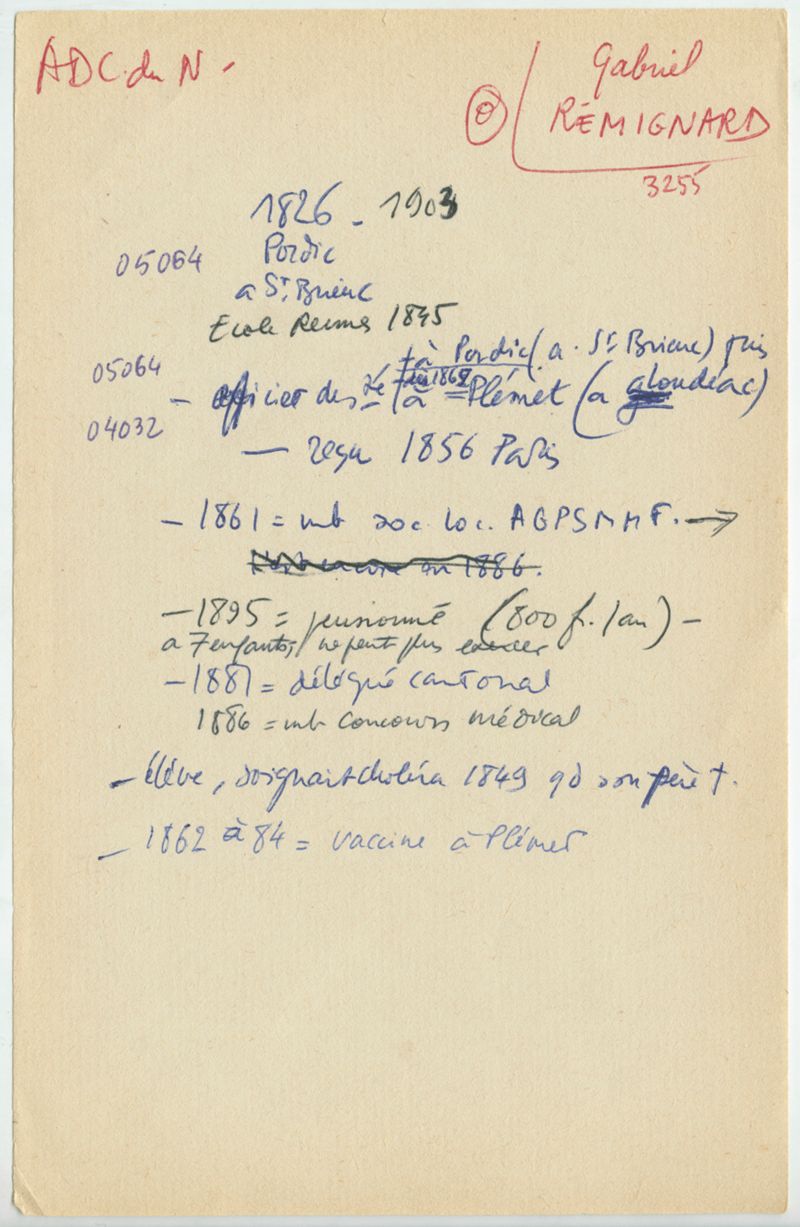 ADC. du N -
Gabriel
RÉMIGNARD
3255
1826 - 1903
05064 Pordic
a St. Brieuc
Ecole Rennes 1845
05064 à Pordic (a. St Brieuc) puis
dès 1862
04032 - officier de sté à Plémèt (a Loudéac)
— reçu 1856 Paris
- 1861 = mb soc. loc. AGPSMMF. →
- 1895 = pensionné (800 fr. / an) -
a 7 enfants, ne peut plus exercer
- 1881 = délégué cantonal
1886 = mb Concours médical
- élève, soignait choléra 1849 qd son père †.
- 1862 à 84 = vaccine à Plémet